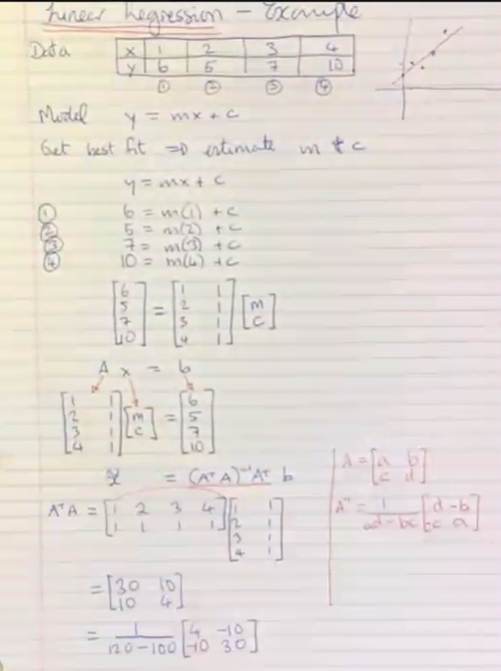 Linear Regression - Example
Data x 1 2 3 4
y 6 5 7 10
① ② ③ ④
Model y = mx + c
Get best fit ⇒ estimate m & c
y = mx + c
① 6 = m(1) + c
② 5 = m(2) + c
③ 7 = m(3) + c
④ 10 = m(4) + c
[6 5 7 10] = [1 1 2 1 3 1 4 1] [m c]
A x = b
[1 1 2 1 3 1 4 1] [m c] = [6 5 7 10]
x̂ = (AᵀA)⁻¹Aᵀ b
A = [a b c d]
AᵀA = [1 2 3 4 1 1 1 1] [1 1 2 1 3 1 4 1]
A⁻¹ = 1/ad-bc [d -b -c a]
= [30 10 10 4]
= 1/120-100 [4 -10 -10 30]